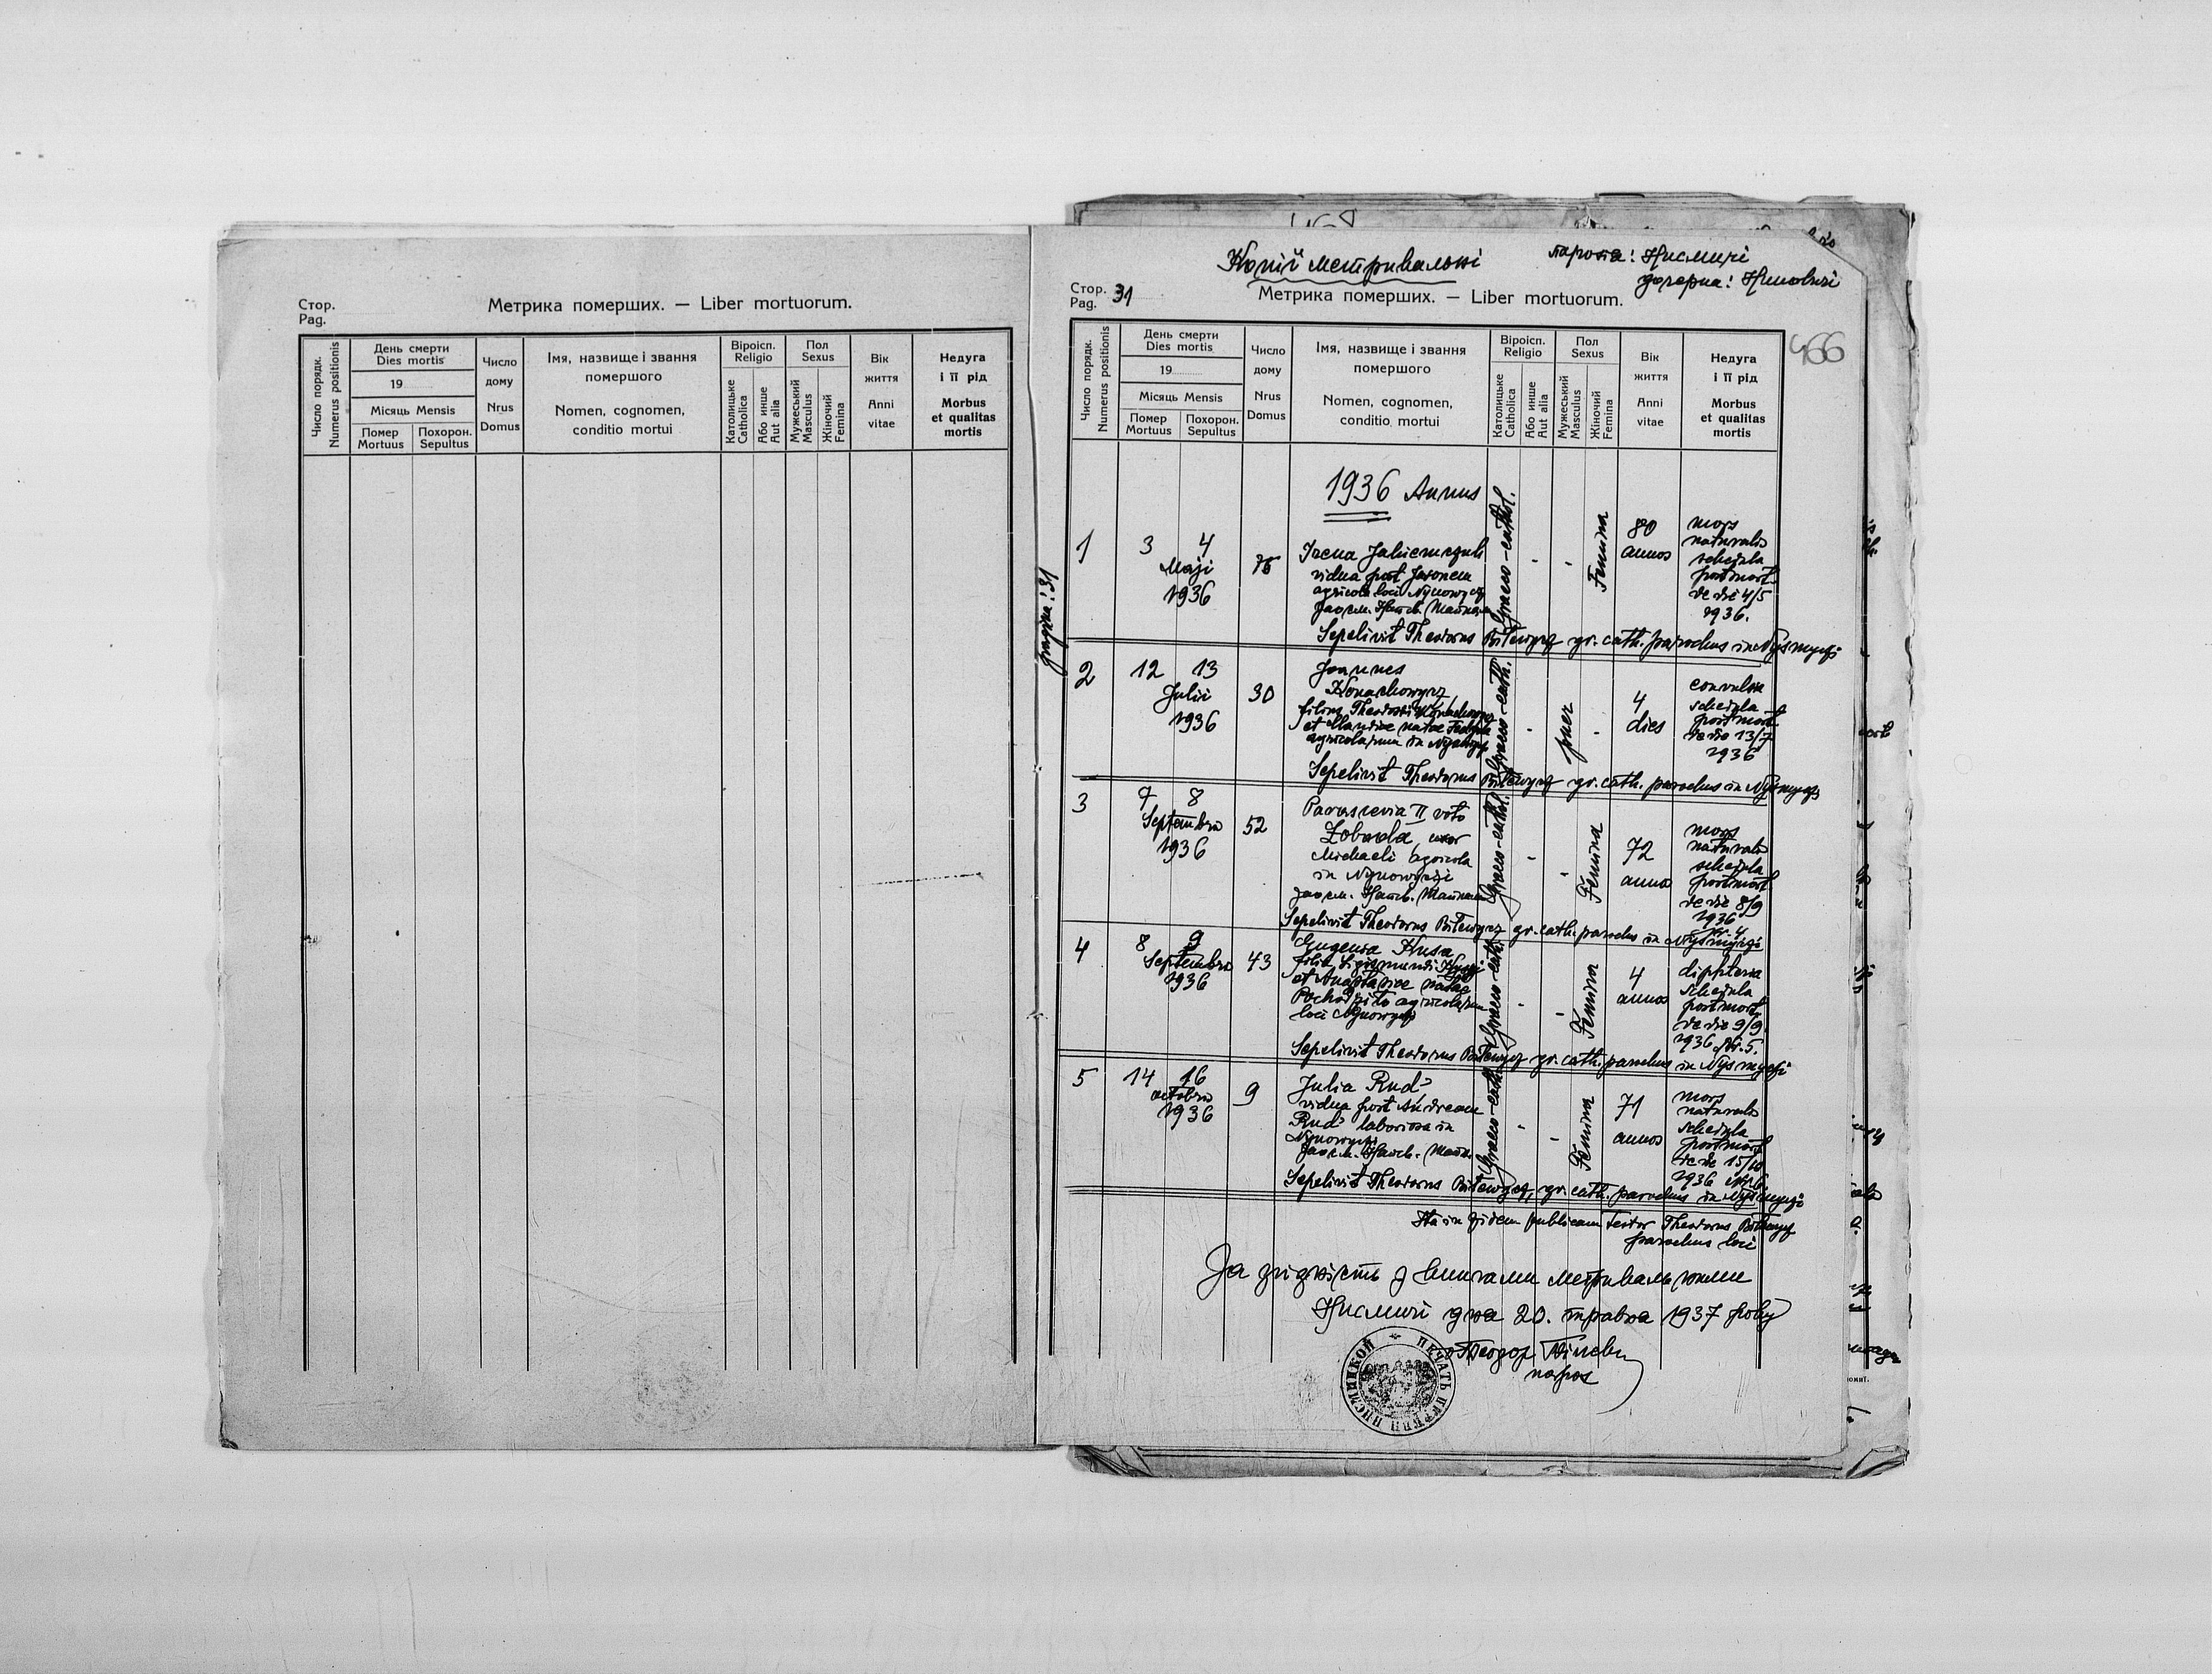 Стор.
Pag.
Метрика померших. — Liber mortuorum.
Число порядк.
Numerus positionis
День смерти
Dies mortis
19
Місяць Mensis
Помер
Mortuus
Похорон.
Sepultus
Число
дому
Nrus
Domus
Імя, назвище і звання
помершого
Nomen, cognomen,
conditio mortui
Віроісп.
Religio
Католицьке
Catholica
Або инше
Aut alia
Пол
Sexus
Мужеський
Masculus
Жіночий
Femina
Вік
життя
Anni
vitae
Недуга
і її рід
Morbus
et qualitas
mortis
pagina: 31
Копії метрикальні
парохія: Нисмичі
дочерна:Ниновичі
Стор.
Pag. 31
Метрика померших. — Liber mortuorum.
466
Число порядк.
Numerus positionis
День смерти
Dies mortis
19
Місяць Mensis
Помер
Mortuus
Похорон.
Sepultus
Число
дому
Nrus
Domus
Імя, назвище і звання
помершого
Nomen, cognomen,
conditio mortui
Віроісп.
Religio
Католицьке
Catholica
Або инше
Aut alia
Пол
Sexus
Мужеський
Masculus
Жіночий
Femina
Вік
життя
Anni
vitae
Недуга
і її рід
Morbus
et qualitas
mortis
1936 Annus
1
3 4
Maji
1936
Irena
vidua post Jasonem
agricola loci Nynowyczi
Graeco-cathol.
Femina
80
annos
mors
naturalis
schedula
postmort.
de die 4/5
1936.
Sepelivit Theodorus Bilewycz gr. cath. parochus in Nysmyczi
2
12 13
Julii
1936
30
Joannes
Konachowycz
filius Theodosii Konachowycz
et Mariae natae
agricolarum in Nynowyczi
Graeco-cath.
puer
4
dies
convulsio
schedula
postmort.
de die 13/7
1936
Sepelivit Theodorus Bilewycz gr. cath. parochus in Nysmyczi
3
7 8
Septembris
1936
52
Parascevia II voto
Zobada, uxor
Michaeli agricola
in Nynowyczi
Graeco-cathol.
Femina
72
annos
mors
naturalis
schedula
postmort.
de die 8/9
1936
Nr. 4
Sepelivit Theodorus Bilewycz gr. cath. parochus in Nysmyczi
4
8 9
Septembris
1936
43
Eugenia Kusa
filia Sigismundi
et Anastasiae natae
Pochodzilo agricolarum
loci Nynowyczi
Graeco-cath.
Femina
4
annos
diphteria
schedula
postmort.
de die 9/9
1936 Nr. 5.
Sepelivit Theodorus Bilewycz gr. cath. parochus in Nysmyczi
5
14 16
octobris
1936
9
Julia Rud'
vidua post Andream
Rud' laboriosa in
Nynowyczi
Graeco-cath.
Femina
71
annos
mors
naturalis
schedula
postmort.
de die 15/10
1936 Nr. 6.
Sepelivit Theodorus Bilewycz, gr. cath. parochus in Nysmyczi
Ita in fidem publicam testor Theodorus Bilewycz
parochus loci
За згідність з книгами метрикальними
Нисмичі дня 20. травня 1937 року
о Теодор Білевич
парох
ПЕЧАТЬ ЦЕРКВИ